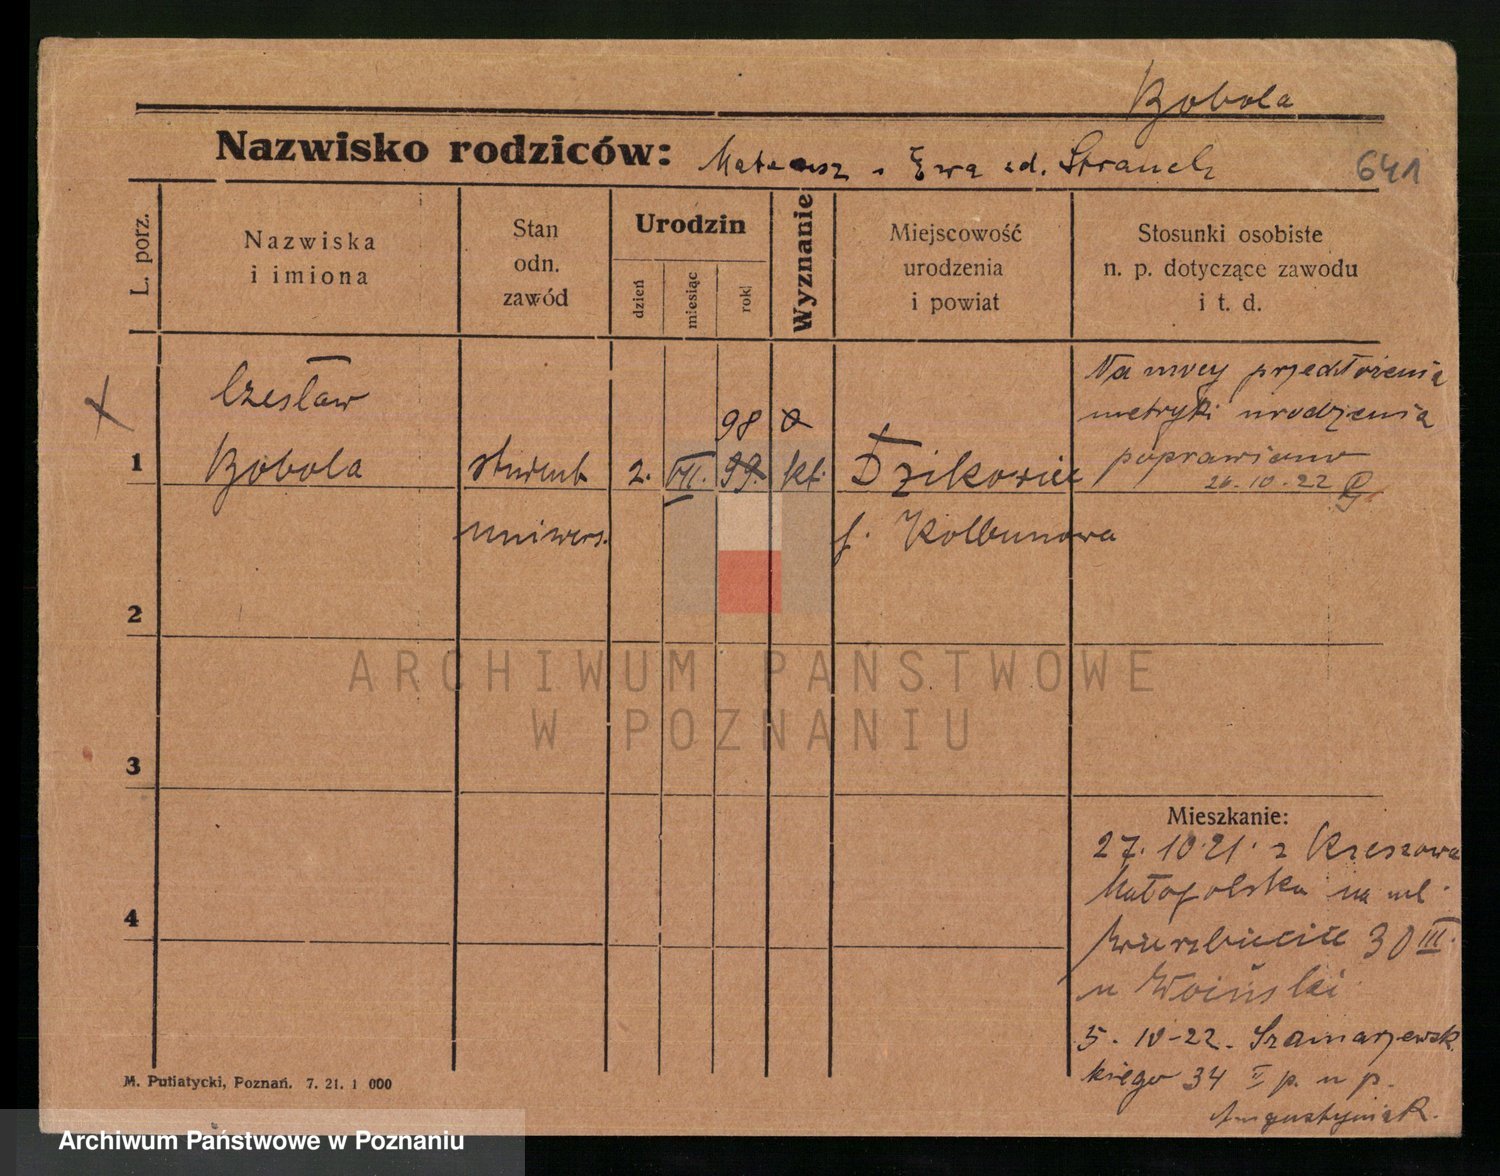 Bobola
Nazwisko rodziców: Mateusz i Ewa zd. Strauch
641
L. porz.
Nazwiska
i imiona
Stan
odn.
zawód
Urodzin
dzień
miesiąc
rok
Wyznanie
Miejscowość
urodzenia
i powiat
Stosunki osobiste
n. p. dotyczące zawodu
i t. d.
1
Czesław
Bobola
student
uniwers.
2.
VII.
98
99.
kt.
Dzikowiec
p. Kolbuszowa
Na mocy przedłożenia
metryki urodzenia
poprawiono
26.10.22
2
3
4
Mieszkanie:
27.10.21. z Rzeszowa
Małopolska na ul.
Wierzbięcice 30 III.
u Woiński
5. 10-22. Szamarzewsk
kiego 34 II p. u p.
Augustyniak.
M. Putiatycki, Poznań. 7. 21. 1 000
ARCHIWUM PAŃSTWOWE
W POZNANIU
Archiwum Państwowe w Poznaniu